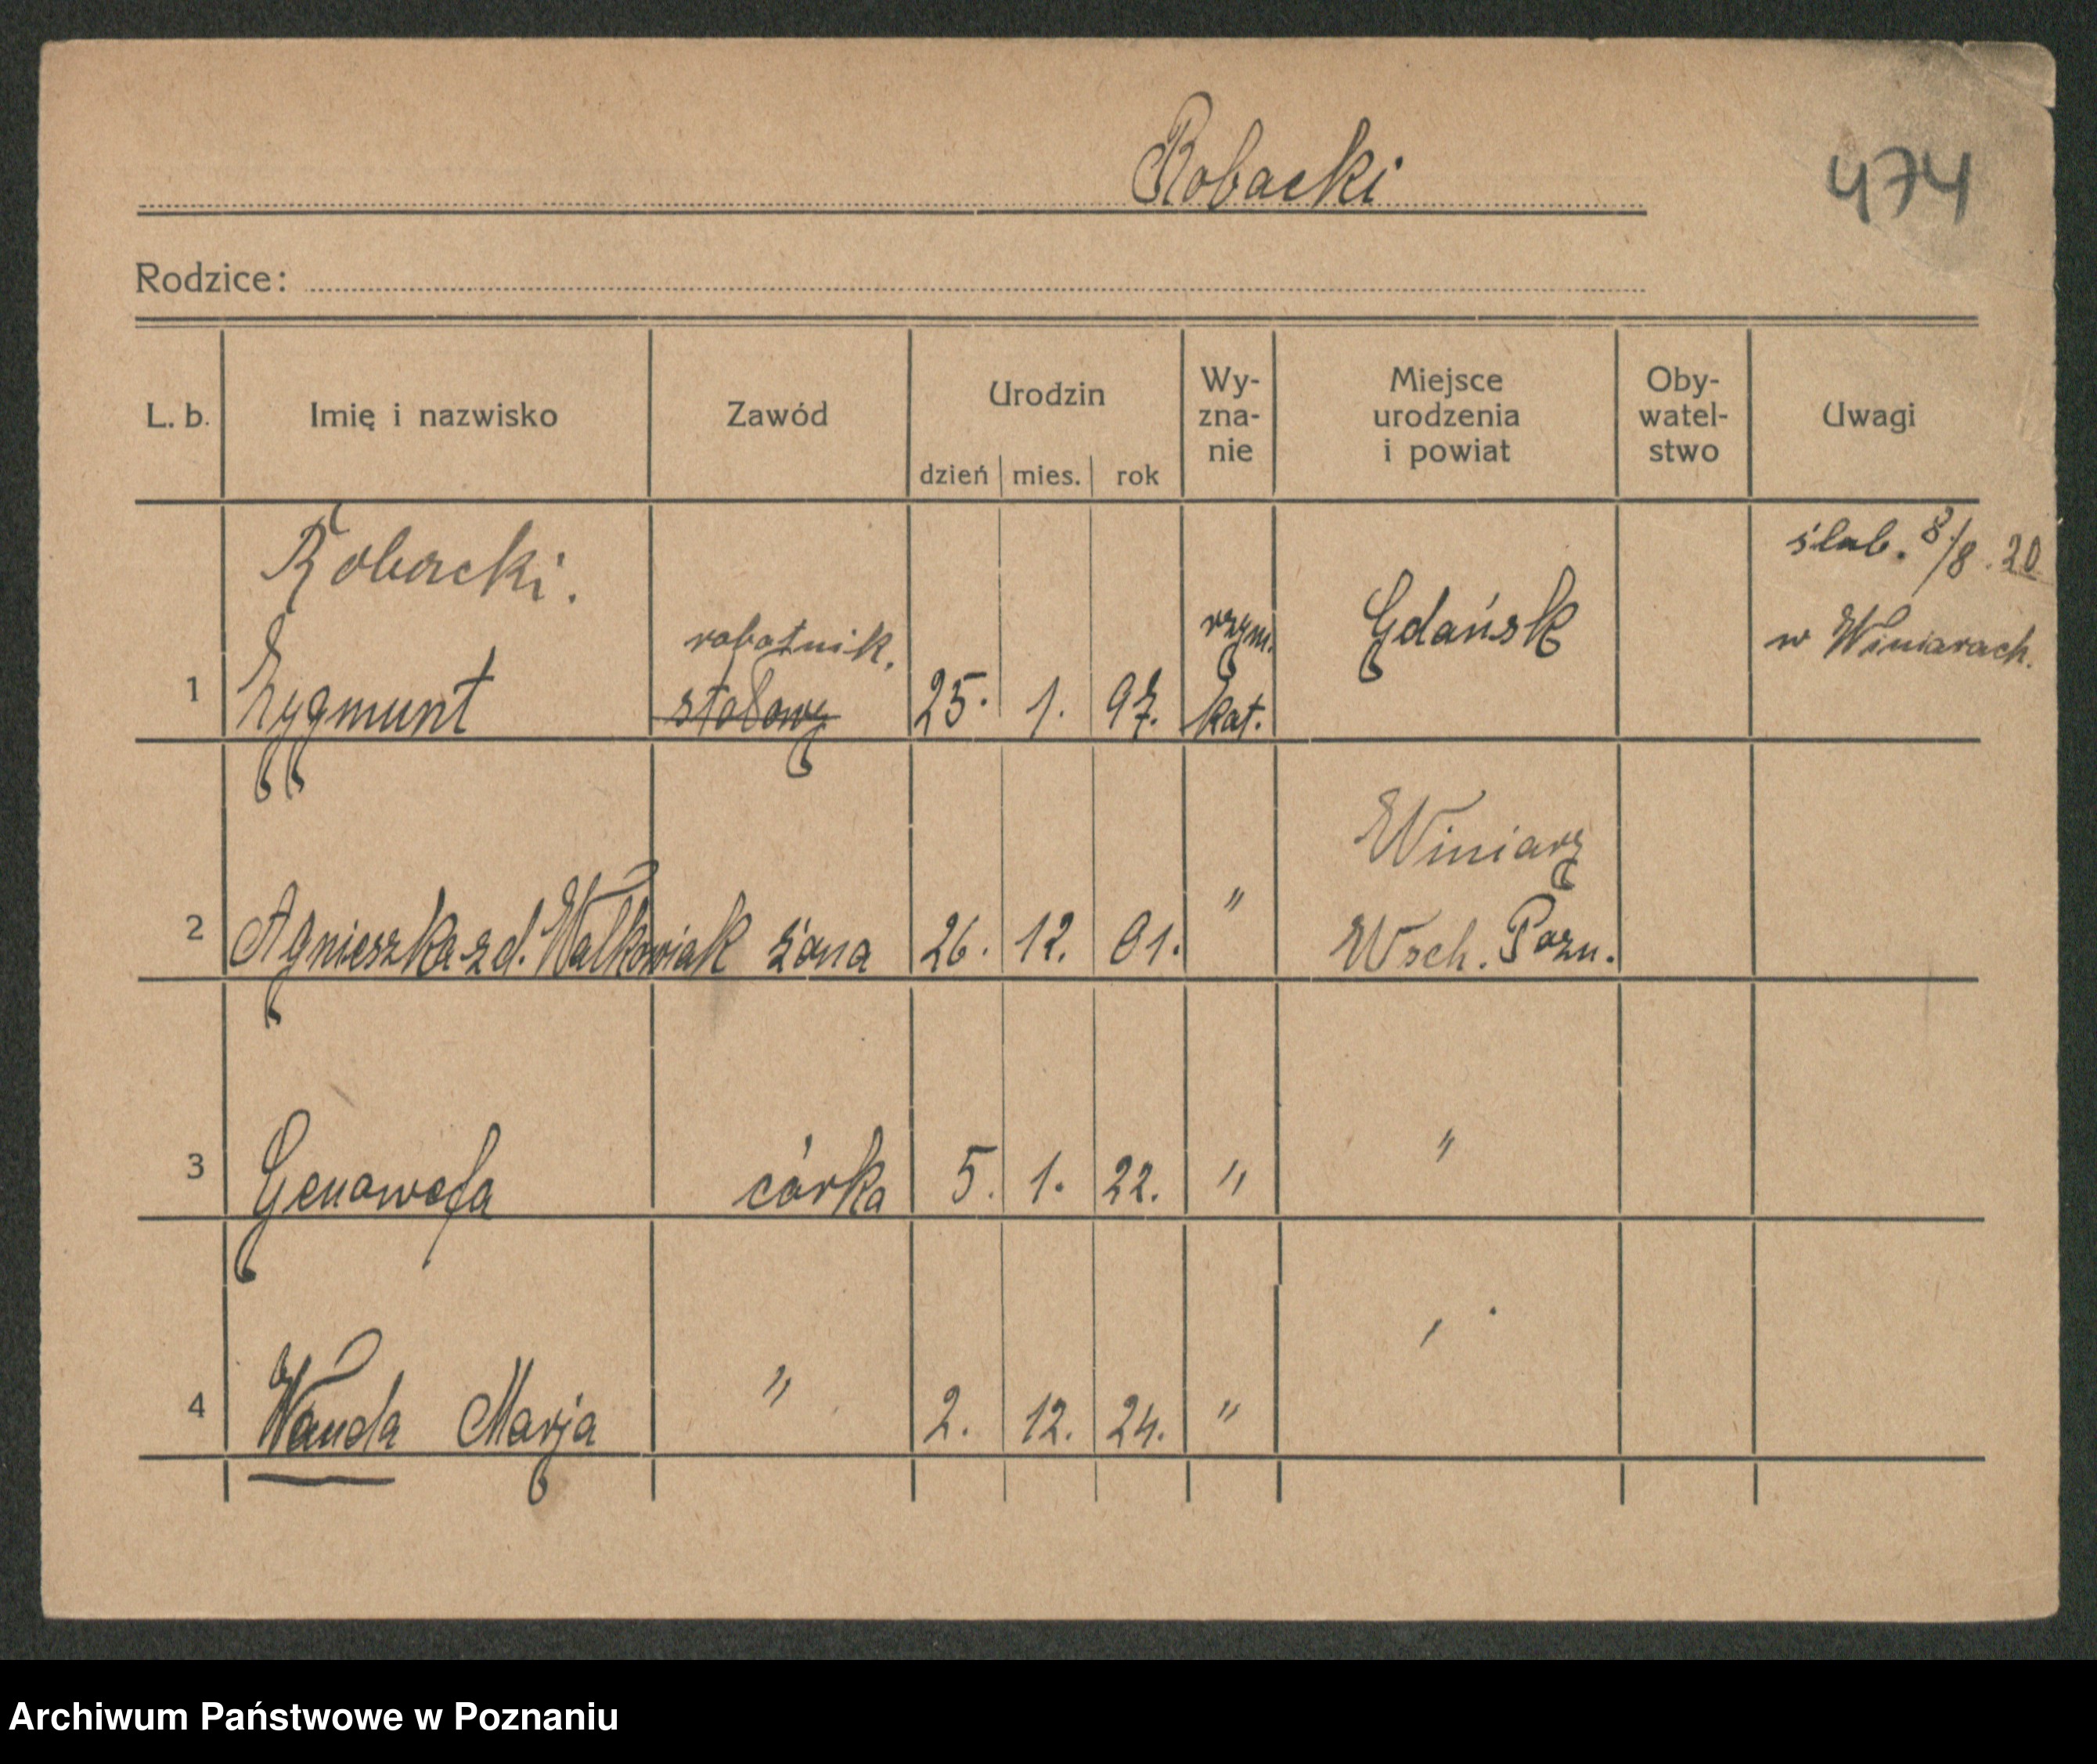 Robacki
474
Rodzice:
L. b. Imię i nazwisko Zawód Urodzin dzień mies. rok Wy-zna-nie Miejsce urodzenia i powiat Oby-watel-stwo Uwagi
Robacki. ślub. 8/8. 20
robotnik. rzym. Gdańsk w Winiarach.
1 Zygmunt stołowy 25. 1. 97. kat.
Winiary
2 Agnieszka zd. Walkowiak żona 26. 12. 01. " Wsch. Pozn.
3 Genowefa córka 5. 1. 22. " "
4 Wanda Marja " 2. 12. 24. " "
Archiwum Państwowe w Poznaniu